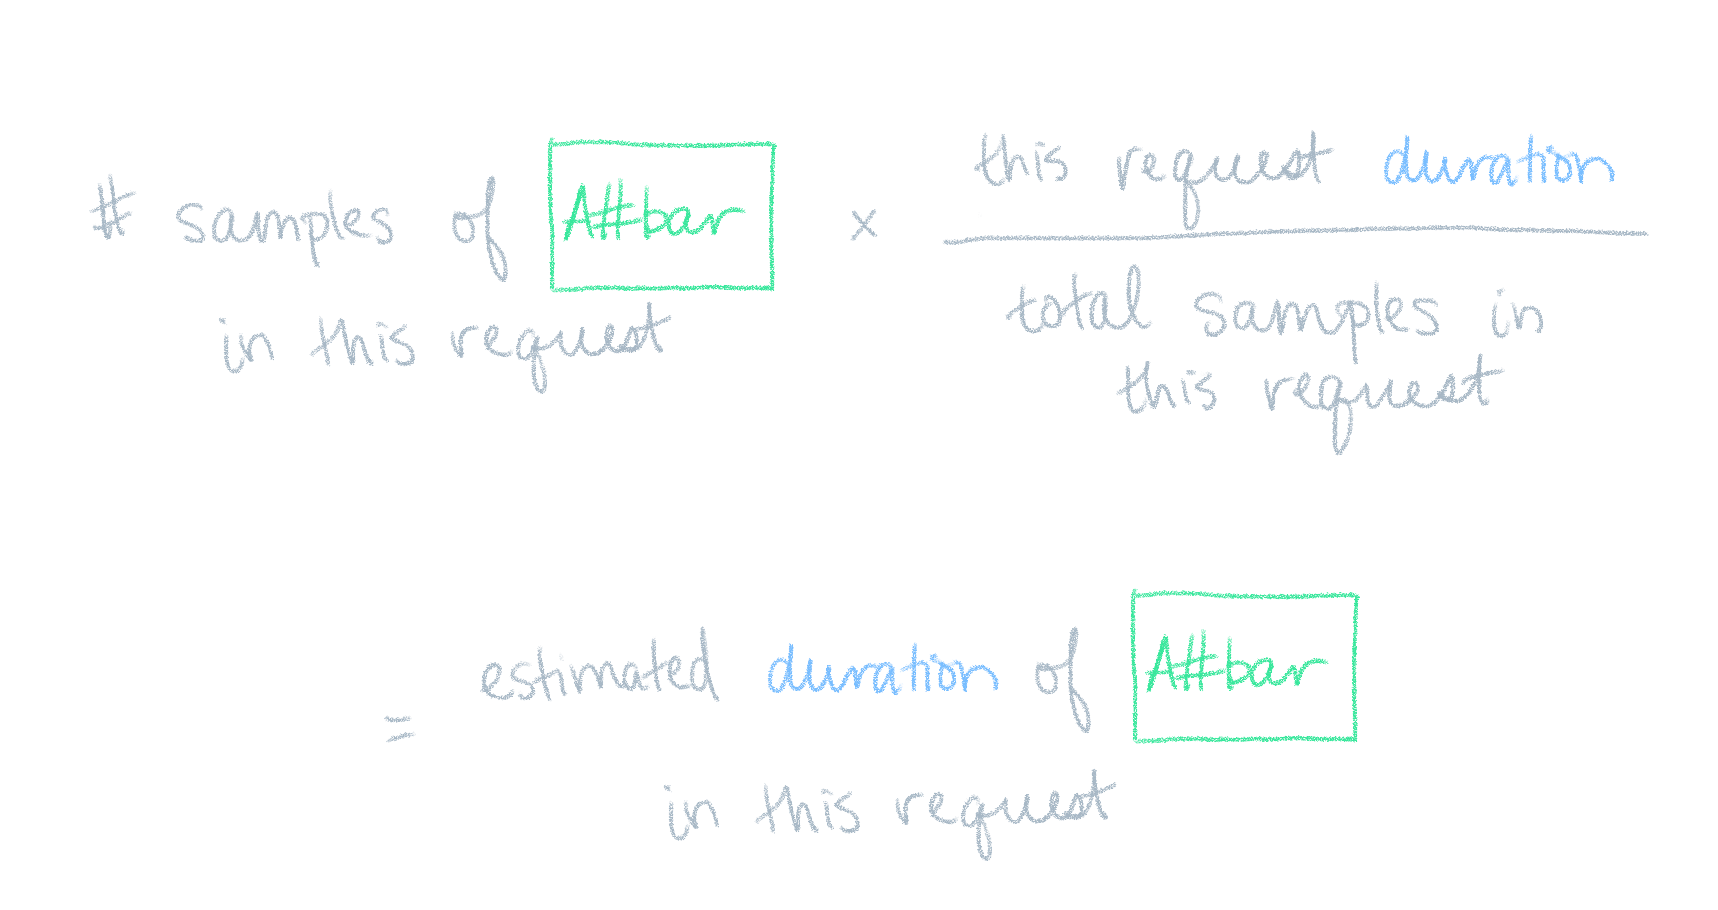 # samples of A#bar
in this request
×
this request duration
total samples in
this request
=
estimated duration of A#bar
in this request